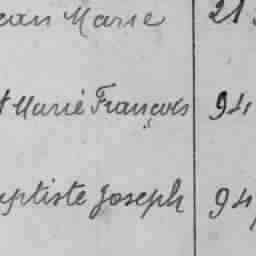 ean Marie 21
t Marie François 94
aptiste Joseph 94